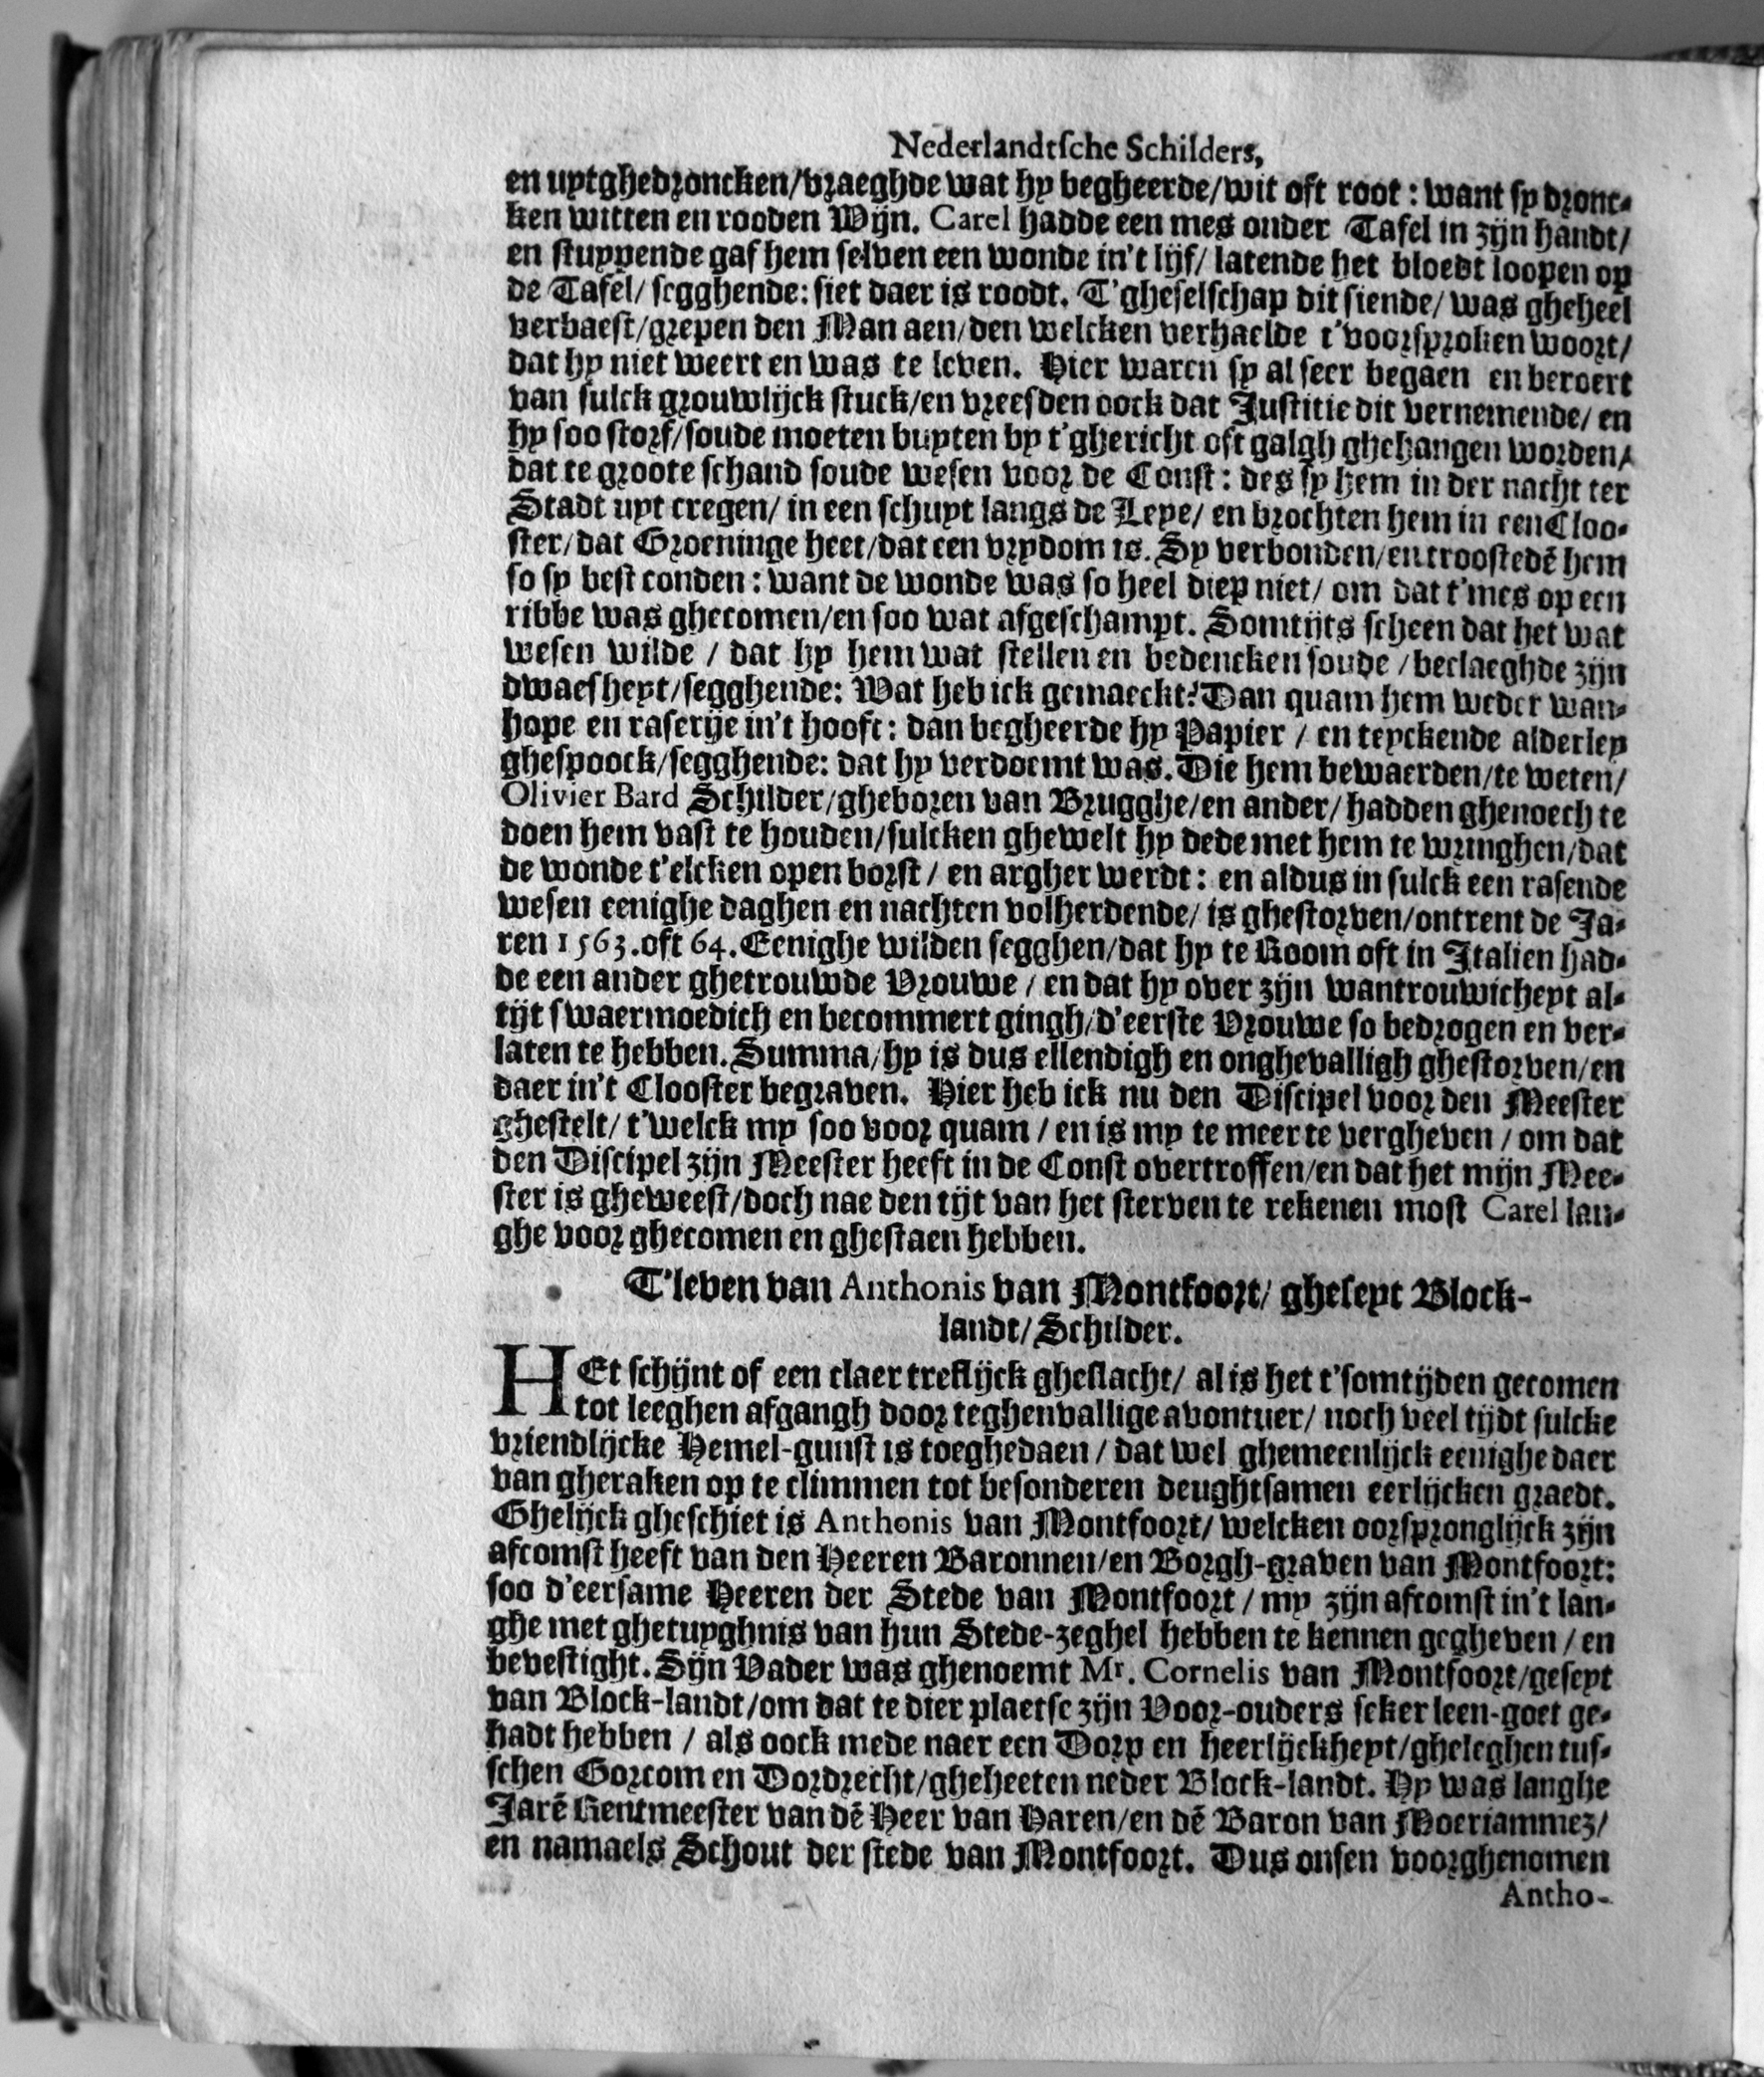 Nederlandtsche Schilders,
en uytghedroncken/vraeghde wat hy begheerde/wit oft root: want sy dronc-
ken witten en rooden Wijn. Carel hadde een mes onder Tafel in zijn handt/
en stuypende gaf hem selven een wonde in't lijf/ latende het bloedt loopen op
de Tafel/ segghende: siet daer is roodt. T'gheselschap dit siende/ was gheheel
verbaest/grepen den Man aen/den welcken verhaelde t'voorsproken woort/
dat hy niet weert en was te leven. Hier waren sy al seer begaen en beroert
van sulck grouwlijck stuck/en vreesden oock dat Justitie dit vernemende/ en
hy soo storf/soude moeten buyten by t'ghericht oft galgh ghehangen worden/
dat te groote schand soude wesen voor de Const: des sy hem in der nacht ter
Stadt uyt cregen/ in een schuyt langs de Leye/ en brochten hem in een Cloo-
ster/dat Groeninge heet/dat een vrydom is. Sy verbonden/en troostedē hem
so sy best conden: want de wonde was so heel diep niet/ om dat t'mes op een
ribbe was ghecomen/en soo wat afgeschampt. Somtijts scheen dat het wat
wesen wilde / dat hy hem wat stellen en bedencken soude /beclaeghde zijn
dwaesheyt/segghende: Wat heb ick gemaeckt? Dan quam hem weder wan-
hope en raserije in't hooft: dan begheerde hy Papier / en teyckende alderley
ghespoock/segghende: dat hy verdoemt was. Die hem bewaerden/te weten/
Olivier Bard Schilder/gheboren van Brugghe/en ander/ hadden ghenoech te
doen hem vast te houden/sulcken ghewelt hy dede met hem te wringhen/dat
de wonde t'elcken open borst / en argher werdt: en aldus in sulck een rasende
wesen eenighe daghen en nachten volherdende/ is ghestorven/ontrent de Ja-
ren 1563. oft 64. Eenighe wilden segghen/dat hy te Room oft in Italien had-
de een ander ghetrouwde Vrouwe / en dat hy over zijn wantrouwicheyt al-
tijt swaermoedich en becommert gingh/d'eerste Vrouwe so bedrogen en ver-
laten te hebben. Summa/hy is dus ellendigh en onghevalligh ghestorven/en
daer in't Clooster begraven. Hier heb ick nu den Discipel voor den Meester
ghestelt/ t'welck my soo voor quam / en is my te meer te vergheven / om dat
den Discipel zijn Meester heeft in de Const overtroffen/en dat het mijn Mee-
ster is gheweest/doch nae den tijt van het sterven te rekenen most Carel lan-
ghe voor ghecomen en ghestaen hebben.
T'leven van Anthonis van Montfoort/ gheseyt Block-
landt/Schilder.
HEt schijnt of een claer treflijck gheslacht/ al is het t'somtijden gecomen
tot leeghen afgangh door teghenvallige avontuer/ noch veel tijdt sulcke
vriendlijcke Hemel-gunst is toeghedaen / dat wel ghemeenlijck eenighe daer
van gheraken op te climmen tot besonderen deughtsamen eerlijcken graedt.
Ghelijck gheschiet is Anthonis van Montfoort/ welcken oorspronglijck zijn
afcomst heeft van den Heeren Baronnen/en Borgh-graven van Montfoort:
soo d'eersame Heeren der Stede van Montfoort / my zijn afcomst in't lan-
ghe met ghetuyghnis van hun Stede-zeghel hebben te kennen gegheven / en
bevestight. Sijn Vader was ghenoemt Mr. Cornelis van Montfoort/geseyt
van Block-landt/om dat te dier plaetse zijn Voor-ouders seker leen-goet ge-
hadt hebben / als oock mede naer een Dorp en heerlijckheyt/gheleghen tus-
schen Gorcom en Dordrecht/gheheeten neder Block-landt. Hy was langhe
Jarē Rentmeester van dē Heer van Haren/en dē Baron van Moeriammez/
en namaels Schout der stede van Montfoort. Dus onsen voorghenomen
Antho-